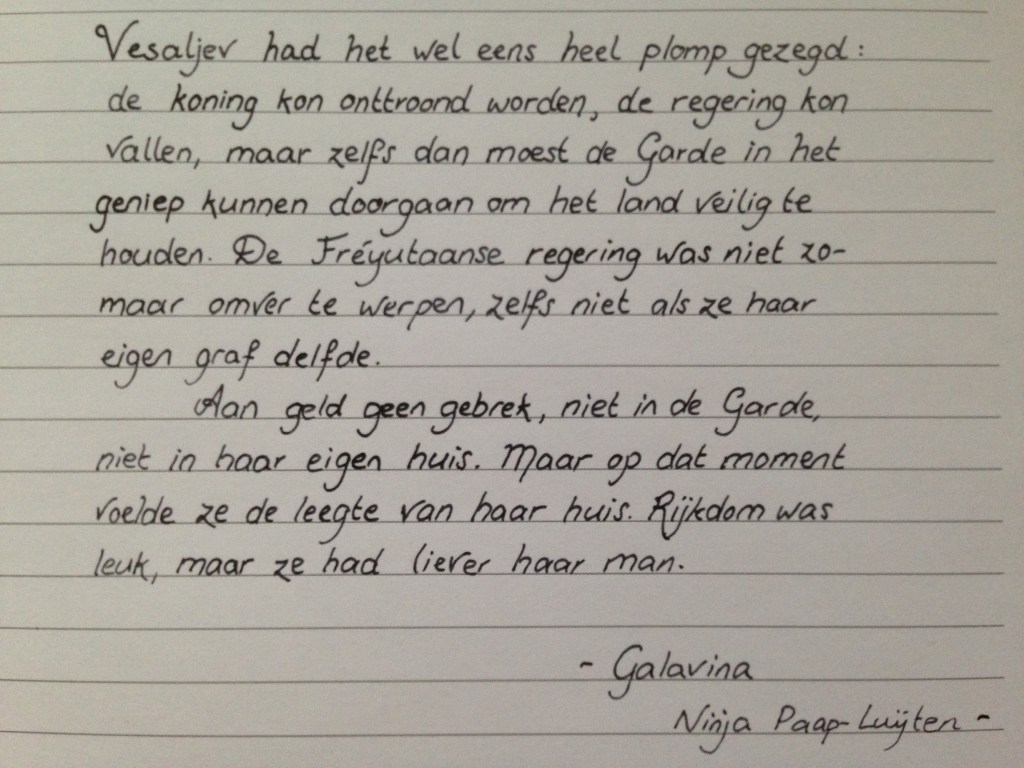 Vesaljev had het wel eens heel plomp gezegd:
de koning kon onttroond worden, de regering kon
vallen, maar zelfs dan moest de Garde in het
geniep kunnen doorgaan om het land veilig te
houden. De Fréyutaanse regering was niet zo-
maar omver te werpen, zelfs niet als ze haar
eigen graf delfde.
Aan geld geen gebrek, niet in de Garde,
niet in haar eigen huis. Maar op dat moment
voelde ze de leegte van haar huis. Rijkdom was
leuk, maar ze had liever haar man.
- Galavina
Ninja Paap-Luijten -